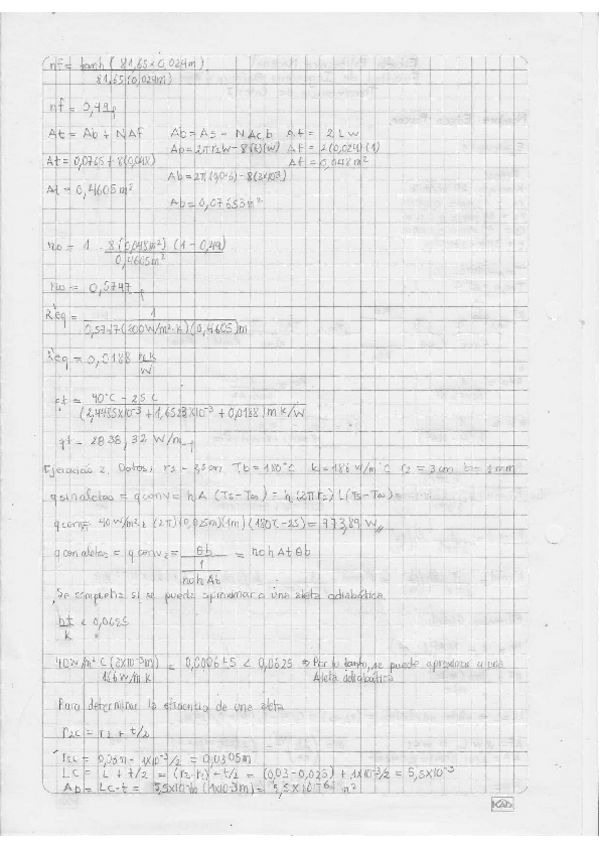 nf = tanh ( 81,65 x 0,024m )
81,65 (0,024m)
nf = 0,49
At = Ab + NAf   Ab = As - NAcb   Af = 2 L w
Ab = 2πr2w - 8(t)(w)   Af = 2(0,024)(1)
At = 0,0765 + 8(0,048)   Af = 0,048m²
Ab = 2π - 8(2x10⁻³)
At = 0,4605m²
Ab = 0,07653m²
no = 1 - 8(0,048m²) (1 - 0,49)
0,4605m²
no = 0,5747
R'eq = 1
0,5747(200W/m²·K)(0,4605)m
R'eq = 0,0188 mK
W
qt = 40°C - 25°C
(2,4485x10⁻³ + 1,6523x10⁻³ + 0,0188) mK/W
qt = 2838,32 W/m
Ejercicio 2. Datos: Tb = 180°C   k = 186 W/m°C   r2 = 3cm
q sin aletas = q conv = h A (Ts - T∞) = h(2πr1) L(Ts - T∞) =
q conv = 40 W/m² (2π)(0,025m)(1m)(180 - 25) = 973,89 W
q con aletas = q conv2 = θb = no h At θb
1
no h At
Se comprueba si se puede aproximar a una aleta adiabática
ht < 0,0625
k
40W/m²°C (2x10⁻³m) = < 0,0625 ⇒ Por lo tanto, se puede aproximar a una
186 W/m K   Aleta adiabática
Para determinar la eficiencia de una aleta
r2c = r2 + t/2
r2c = 0,03m - 1x10⁻³/2 = 0,0305m
Lc = L + t/2 = (r2 - r1) - t/2 = (0,03 - 0,025) + 1x10⁻³/2 = 5,5x10⁻³
Ap = Lc·t = (1x10⁻³m) = 5,5x10⁻⁶ m²